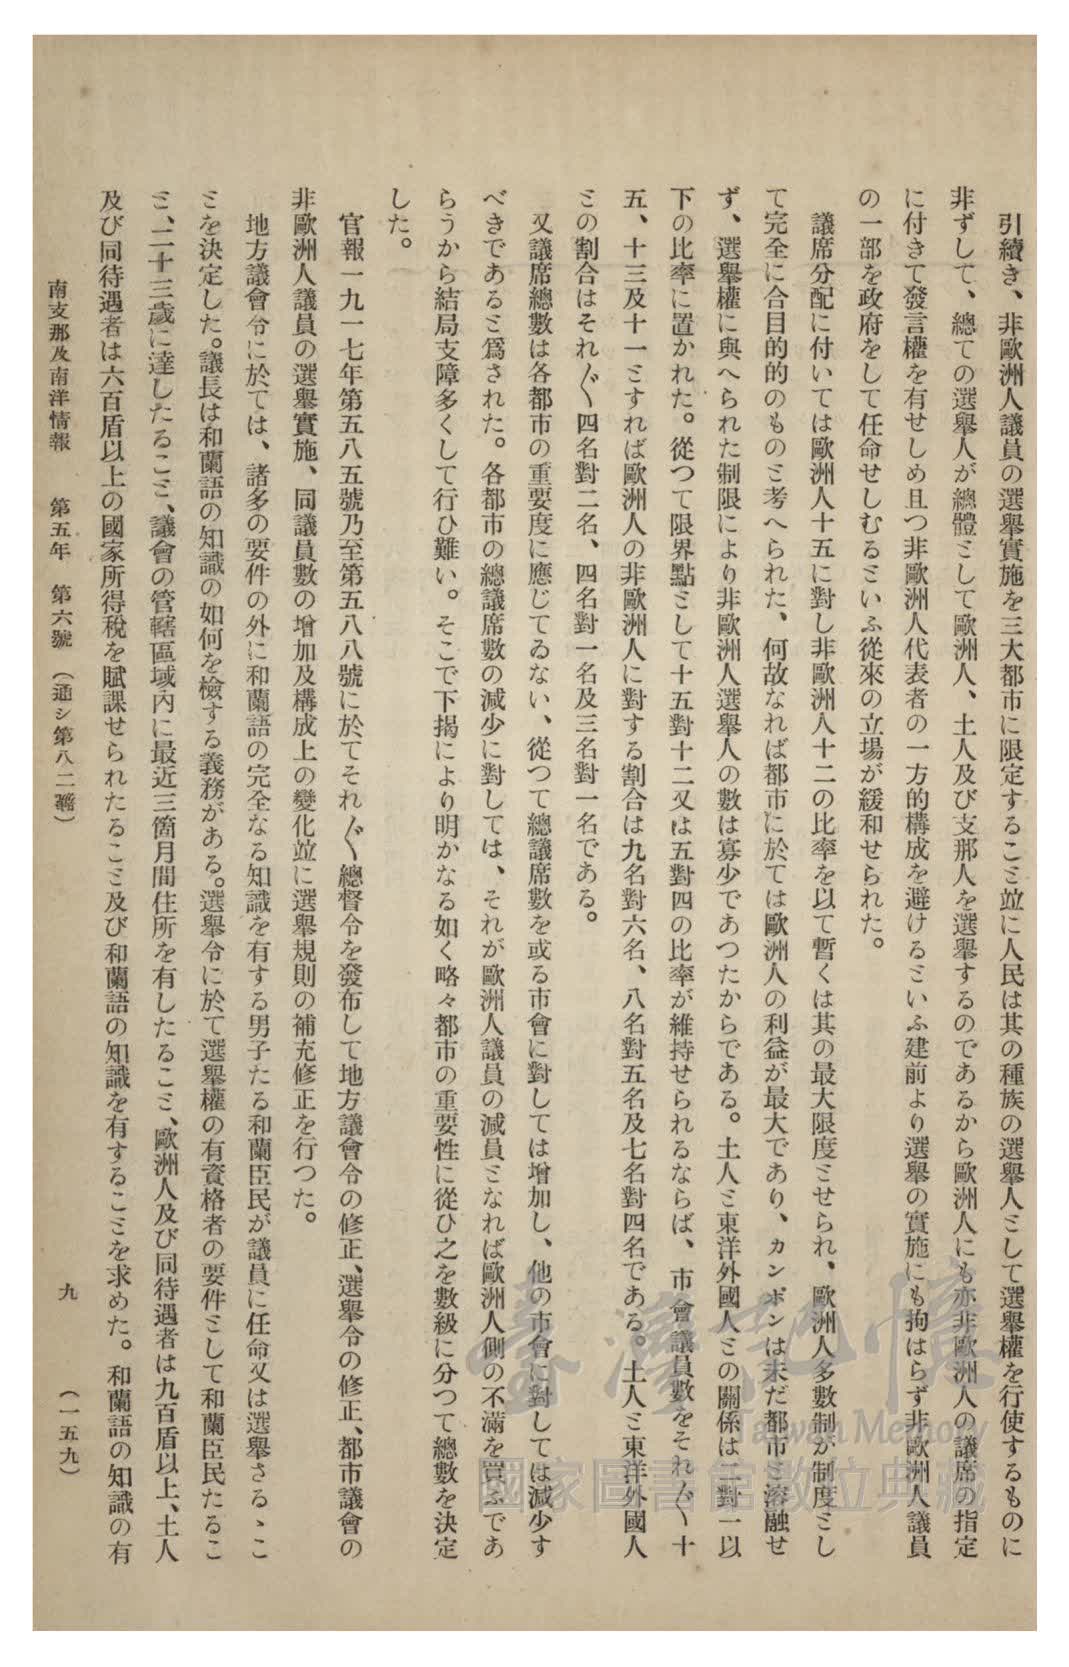 引續き、非歐洲人議員の選擧實施を三大都市に限定すること竝に人民は其の種族の選擧人として選擧權を行使するものに
非ずして、總ての選擧人が總體として歐洲人、土人及び支那人を選擧するのであるから歐洲人にも亦非歐洲人の議席の指定
に付きて發言權を有せしめ且つ非歐洲人代表者の一方的構成を避けるといふ建前より選擧の實施にも拘はらず非歐洲人議員
の一部を政府をして任命せしむるといふ從來の立場が緩和せられた。
議席分配に付いては歐洲人十五に對し非歐洲人十二の比率を以て暫くは其の最大限度とせられ、歐洲人多數制が制度とし
て完全に合目的的のものと考へられた、何故なれば都市に於ては歐洲人の利益が最大であり、カンポンは未だ都市と溶融せ
ず、選擧權に與へられた制限により非歐洲人選擧人の數は寡少であつたからである。土人と東洋外國人との關係は二對一以
下の比率に置かれた。從つて限界點として十五對十二又は五對四の比率が維持せられるならば、市會議員數をそれ〲十
五、十三及十一とすれば歐洲人の非歐洲人に對する割合は九名對六名、八名對五名及七名對四名である。土人と東洋外國人
との割合はそれ〲四名對二名、四名對一名及三名對一名である。
又議席總數は各都市の重要度に應じてゐない、從つて總議席數を或る市會に對しては增加し、他の市會に對しては減少す
べきであると爲された。各都市の總議席數の減少に對しては、それが歐洲人議員の減員となれば歐洲人側の不滿を買ふであ
らうから結局支障多くして行ひ難い。そこで下揭により明かなる如く略々都市の重要性に從ひ之を數級に分つて總數を決定
した。
官報一九一七年第五八五號乃至第五八八號に於てそれ〲總督令を發布して地方議會令の修正、選擧令の修正、都市議會の
非歐洲人議員の選擧實施、同議員數の增加及構成上の變化竝に選擧規則の補充修正を行つた。
地方議會令に於ては、諸多の要件の外に和蘭語の完全なる知識を有する男子たる和蘭臣民が議員に任命又は選擧さるゝこ
とを決定した。議長は和蘭語の知識の如何を檢する義務がある。選擧令に於て選擧權の有資格者の要件として和蘭臣民たるこ
と、二十三歲に達したること、議會の管轄區域內に最近三箇月間住所を有したること、歐洲人及び同待遇者は九百盾以上、土人
及び同待遇者は六百盾以上の國家所得稅を賦課せられたること及び和蘭語の知識を有することを求めた。和蘭語の知識の有
南支那及南洋情報 第五年 第六號 (通シ第八二號) 九 (一五九)
臺灣記憶
Taiwan Memory
國家圖書館數位典藏